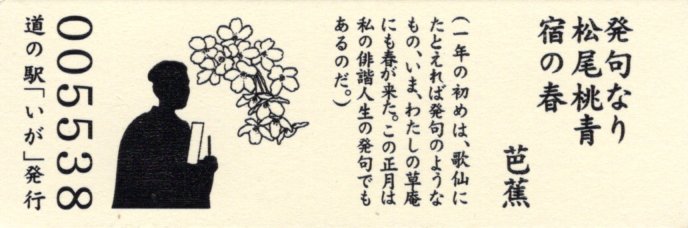 発句なり
松尾桃青
宿の春
芭蕉
(一年の初めは、歌仙に
たとえれば発句のような
もの、いま、わたしの草庵
にも春が来た。この正月は
私の俳諧人生の発句でも
あるのだ。)
005538
道の駅「いが」発行